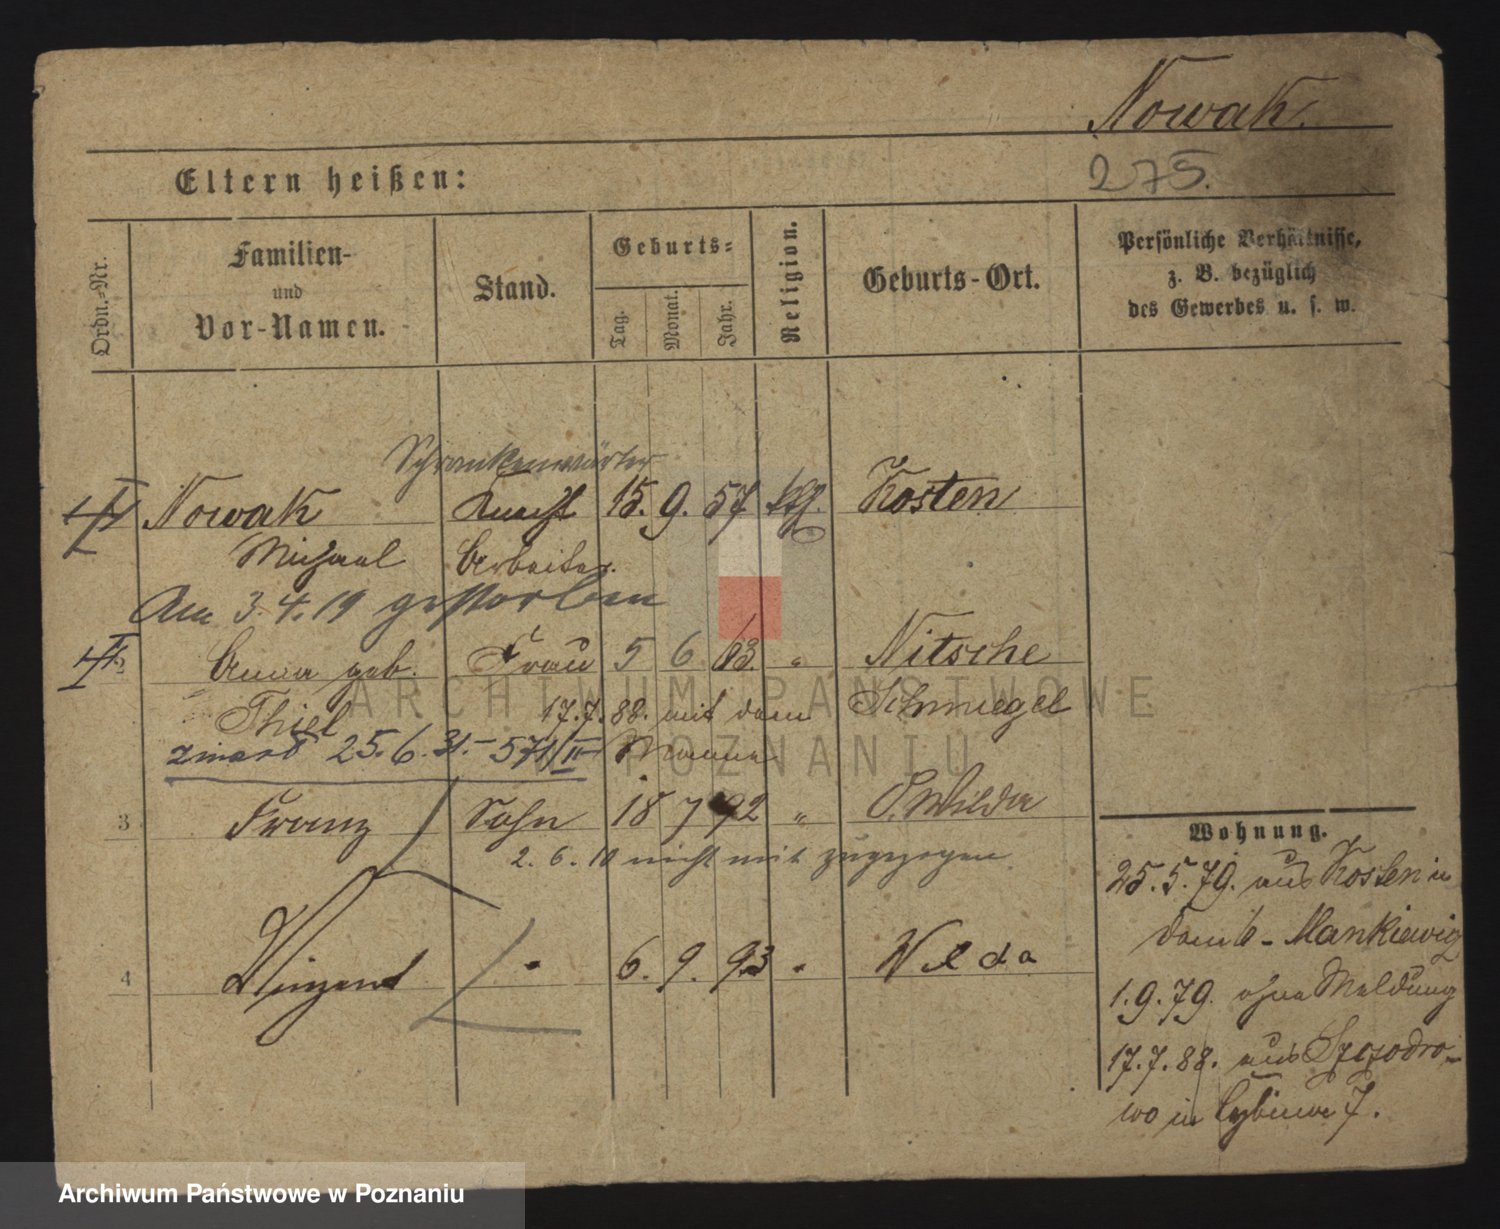 Nowak.
275.
Eltern heißen:
Ordn.-Nr.
Familien-
und
Vor-Namen.
Stand.
Geburts-
Tag.
Monat.
Jahr.
Religion.
Geburts-Ort.
Persönliche Verhältnisse,
z. B. bezüglich
des Gewerbes u. s. w.
Schrankenwärter
Nowak Knecht 15. 9. 57 ktl. Kosten
Michael Arbeiter.
Am 3.4.19 gestorben
2 Anna geb. Frau 5 6 63 " Nitsche
Thiel 17.7.88. mit dem Schmiegel
zmarł 25.6.31.- 571/II Manne
3 Franz Sohn 18 7 92 " O. Wilda
2.6.10 nicht mit zugezogen
4 Vinzent " 6. 9. 93 " Wilda
Wohnung.
25.5.79. aus Kosten in
Mankiewig
1.9.79. ohne Meldung
17.7.88. aus
wo in Cybina 7.
ARCHIWUM PAŃSTWOWE
POZNANIU
Archiwum Państwowe w Poznaniu